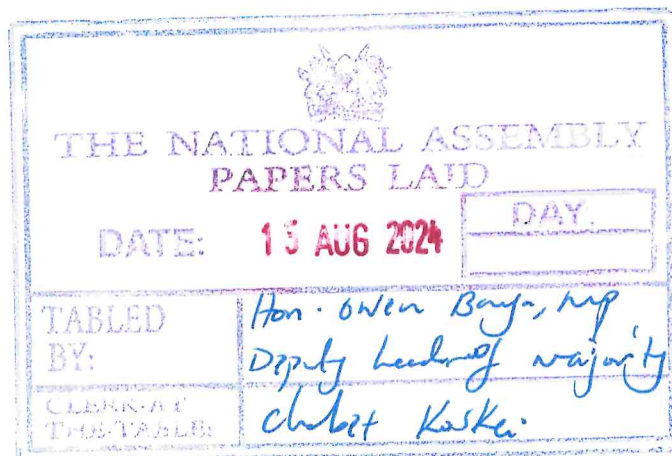 THE NATIONAL ASSEMBLY
PAPERS LAID
DATE: 15 AUG 2024
DAY.
TABLED BY:
Hon. Owen Baya, MP
Deputy Leader of majority
CLERK-AT THE-TABLE:
Koskei